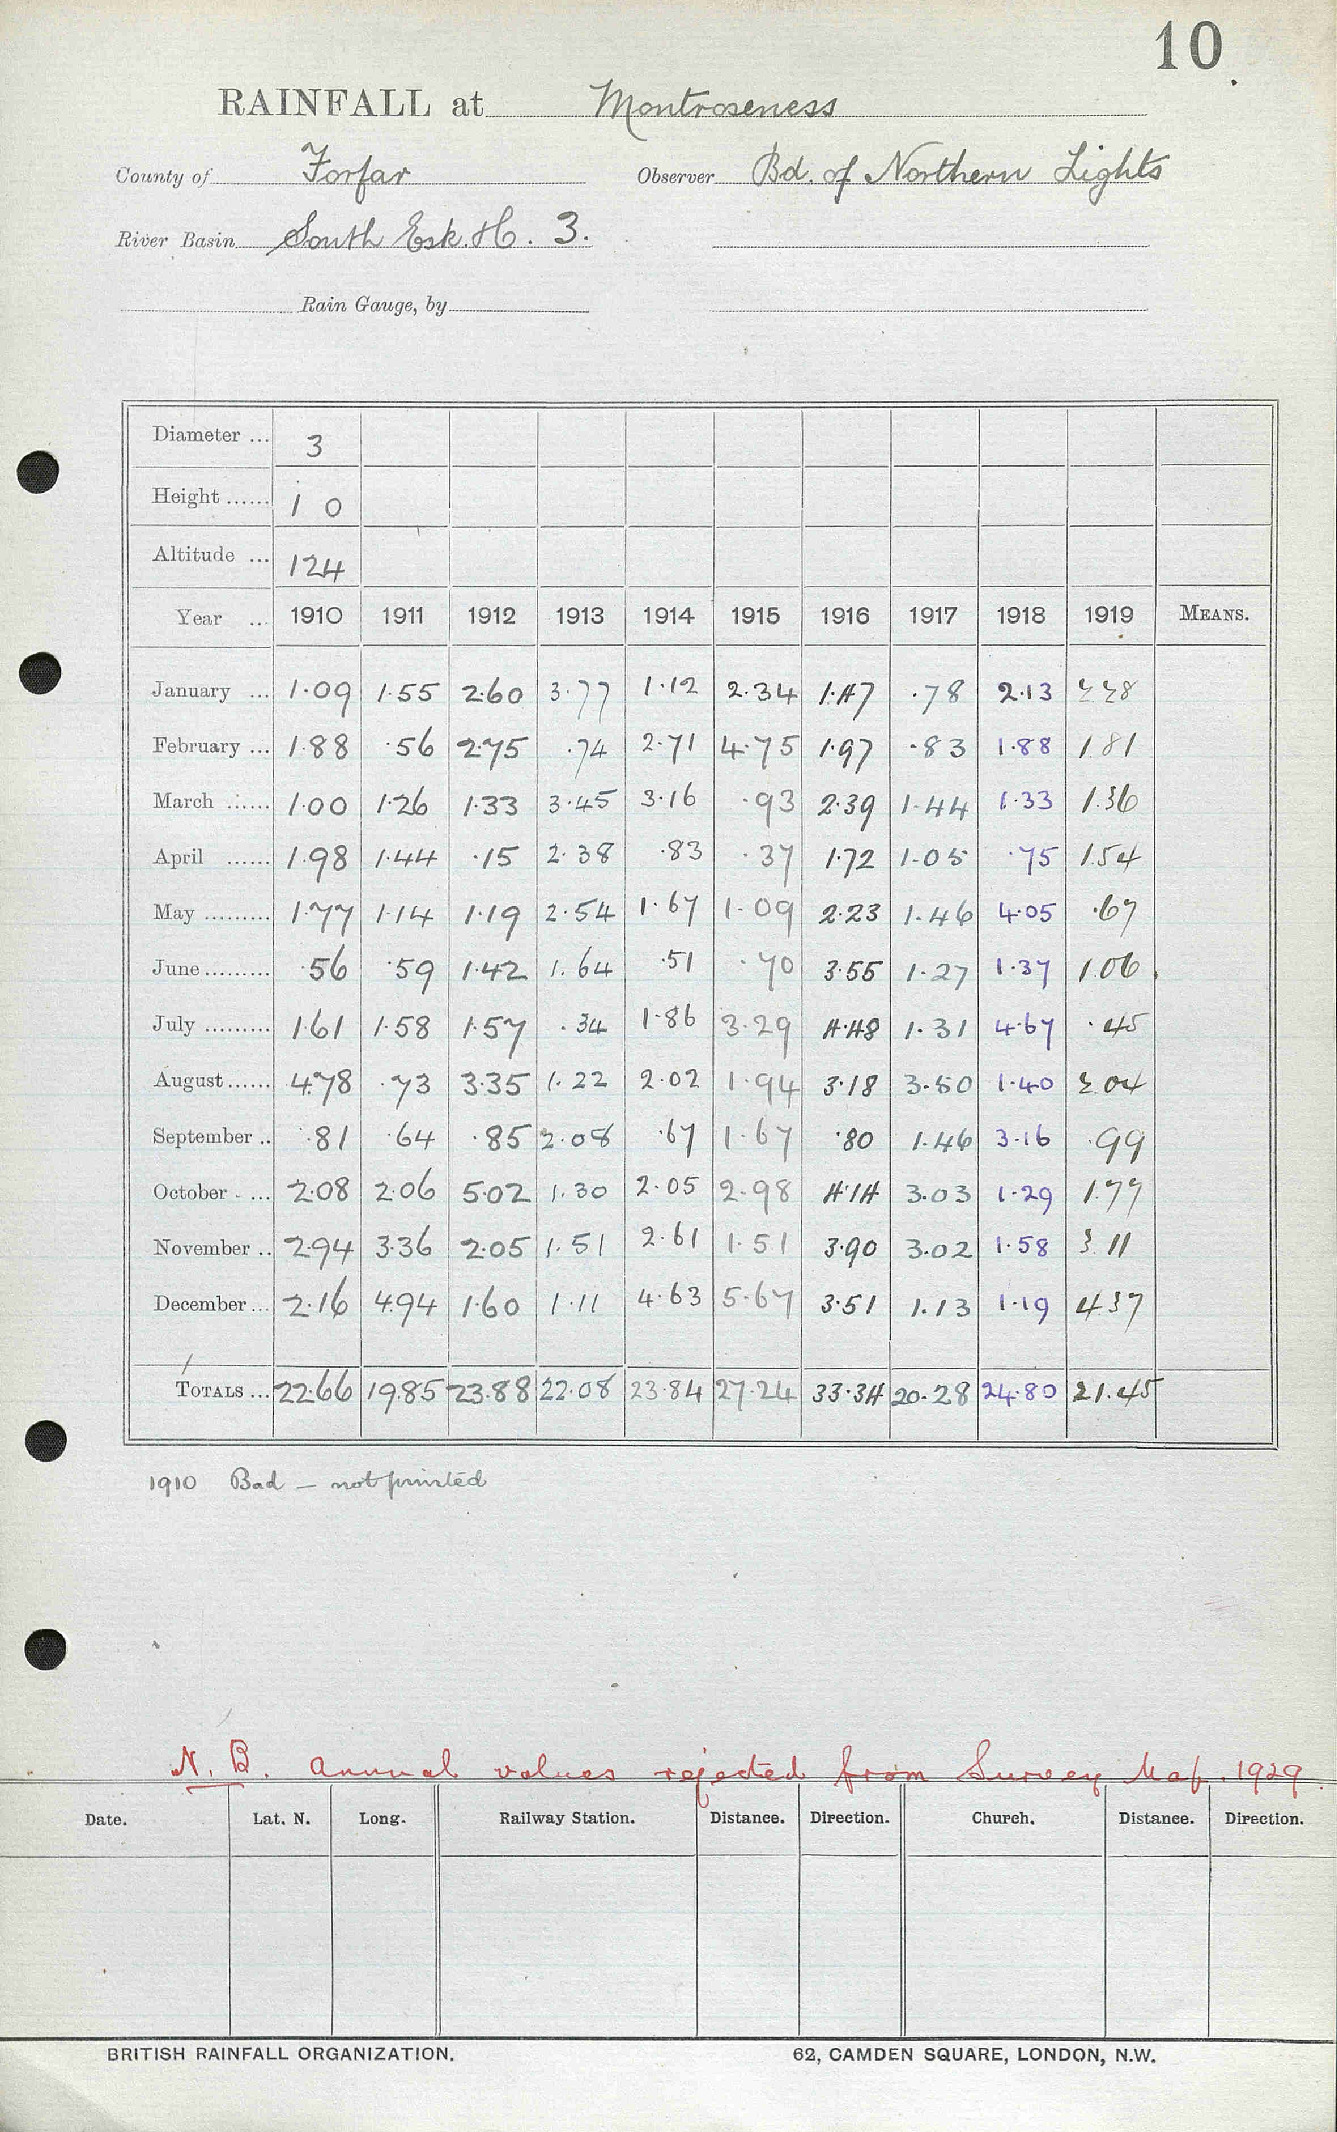 10
RAINFALL at Montroseness
County of Forfar Observer Bd. of Northern Lights
River Basin South Esk. H. 3.
Rain Gauge, by
Diameter ... 3
Height ...... 1 0
Altitude ... 124
Year ... 1910 1911 1912 1913 1914 1915 1916 1917 1918 1919 MEANS.
January ... 1.09 1.55 2.60 3.77 1.12 2.34 1.47 .78 2.13 2.28
February ... 1.88 .56 2.75 .74 2.71 4.75 1.97 .83 1.88 1.81
March ...... 1.00 1.26 1.33 3.45 3.16 .93 2.39 1.44 1.33 1.36
April ...... 1.98 1.44 .15 2.38 .83 .37 1.72 1.05 .75 1.54
May ......... 1.77 1.14 1.19 2.54 1.67 1.09 2.23 1.46 4.05 .67
June ......... .56 .59 1.42 1.64 .51 .70 3.55 1.27 1.37 1.06
July ......... 1.61 1.58 1.57 .34 1.86 3.29 4.48 1.31 4.67 .45
August ...... 4.78 .73 3.35 1.22 2.02 1.94 3.18 3.50 1.40 2.04
September .. .81 .64 .85 2.08 .67 1.67 .80 1.46 3.16 .99
October ... 2.08 2.06 5.02 1.30 2.05 2.98 4.14 3.03 1.29 1.77
November .. 2.94 3.36 2.05 1.51 2.61 1.51 3.90 3.02 1.58 3.11
December ... 2.16 4.94 1.60 1.11 4.63 5.67 3.51 1.13 1.19 4.37
TOTALS ... 22.66 19.85 23.88 22.08 23.84 27.24 33.34 20.28 24.80 21.45
1910 Bad — not printed
N. B. Annual values rejected from Survey Map. 1929.
Date. Lat. N. Long. Railway Station. Distance. Direction. Church. Distance. Direction.
BRITISH RAINFALL ORGANIZATION. 62, CAMDEN SQUARE, LONDON, N.W.